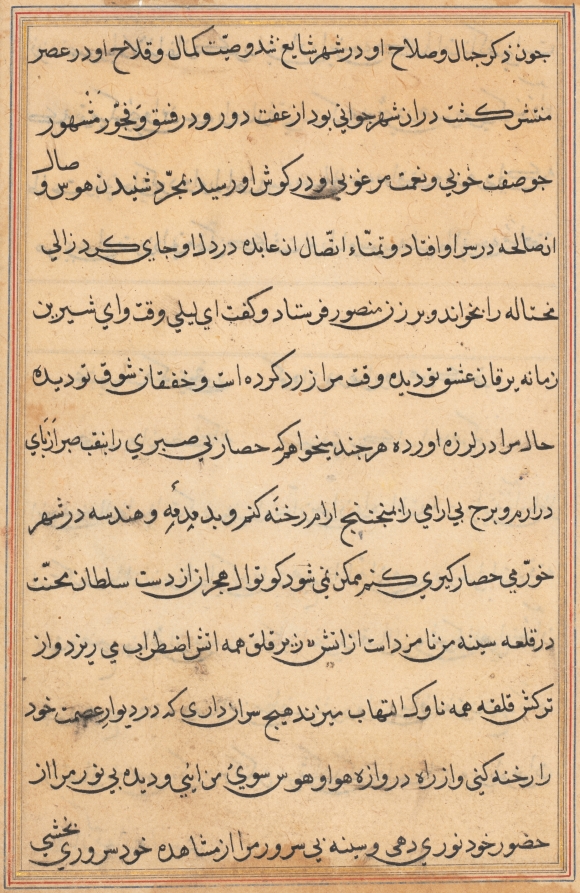 جون ذکر جمال و صلاح او در شهر شایع شد و صیت کمال و فلاح او در عصر
منتشر کشت در ان شهر جوانی بود از عفت دور و در فسق و فجور مشهور
جو صفت خوبی و نعمت مرغوبی او در کوش او رسید بمجرد شنیدن هوس وصال
ان صالحه در سر او افتاد و تمناء اتصال ان عابده در دل او جای کرد زالی
محتاله را بخواند و بر زن منصور فرستاد و کفت ای لیلی وقت و ای شیرین
زمانه یرقان عشق تو دیده وقت مرا زرد کرده است و خفقان شوق تو دیده
حال مرا در لرزه اورده هر جند میخواهم که حصار بی صبری را بنقب صبر از بای
درارم و برج بی ارامی را بمنجنیج ارام رخنه کنم و بدمدمه و هندسه در شهر
خرمی حصار کیری کنم ممکن نمی شود کوتوال هجران از دست سلطان محنت
در قلعه سینه من نامزد است از اتش قلق همه اتش اضطراب می ریزد و از
ترکش قلقه همه ناوک التهاب میزند هیج سر ان داری که در دیوار عصمت خود
را رخنه کنی و از راه دروازه هوا و هوس سوی من ائی و دیده بی نور مرا از
حضور خود نوری دهی و سینه بی سرور مرا از مشاهده خود سروری بخشی